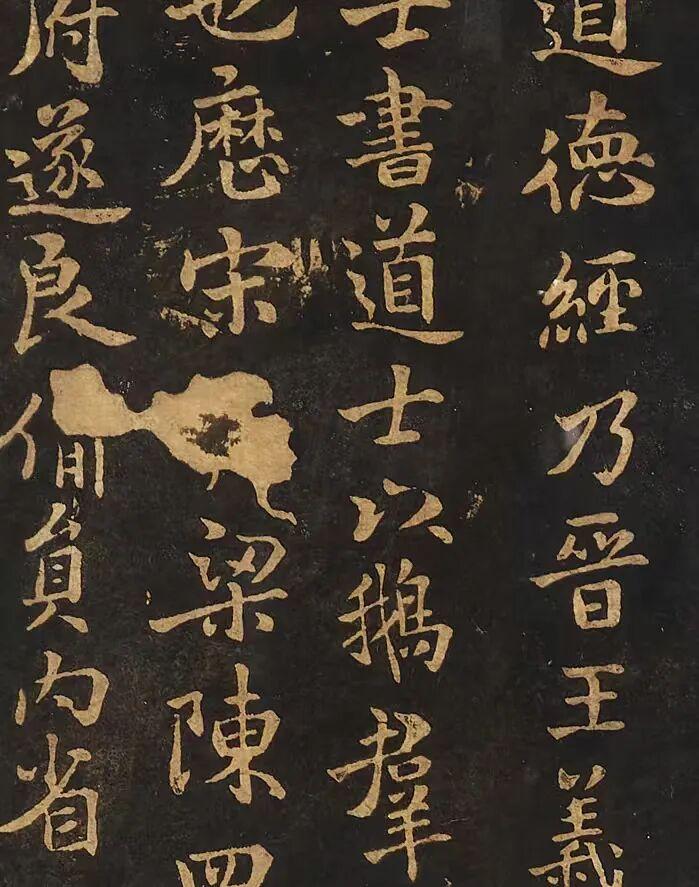 道德經乃晉王羲
士書道士以鵝羣
也歷宋梁陳四
府遂良僩員內省